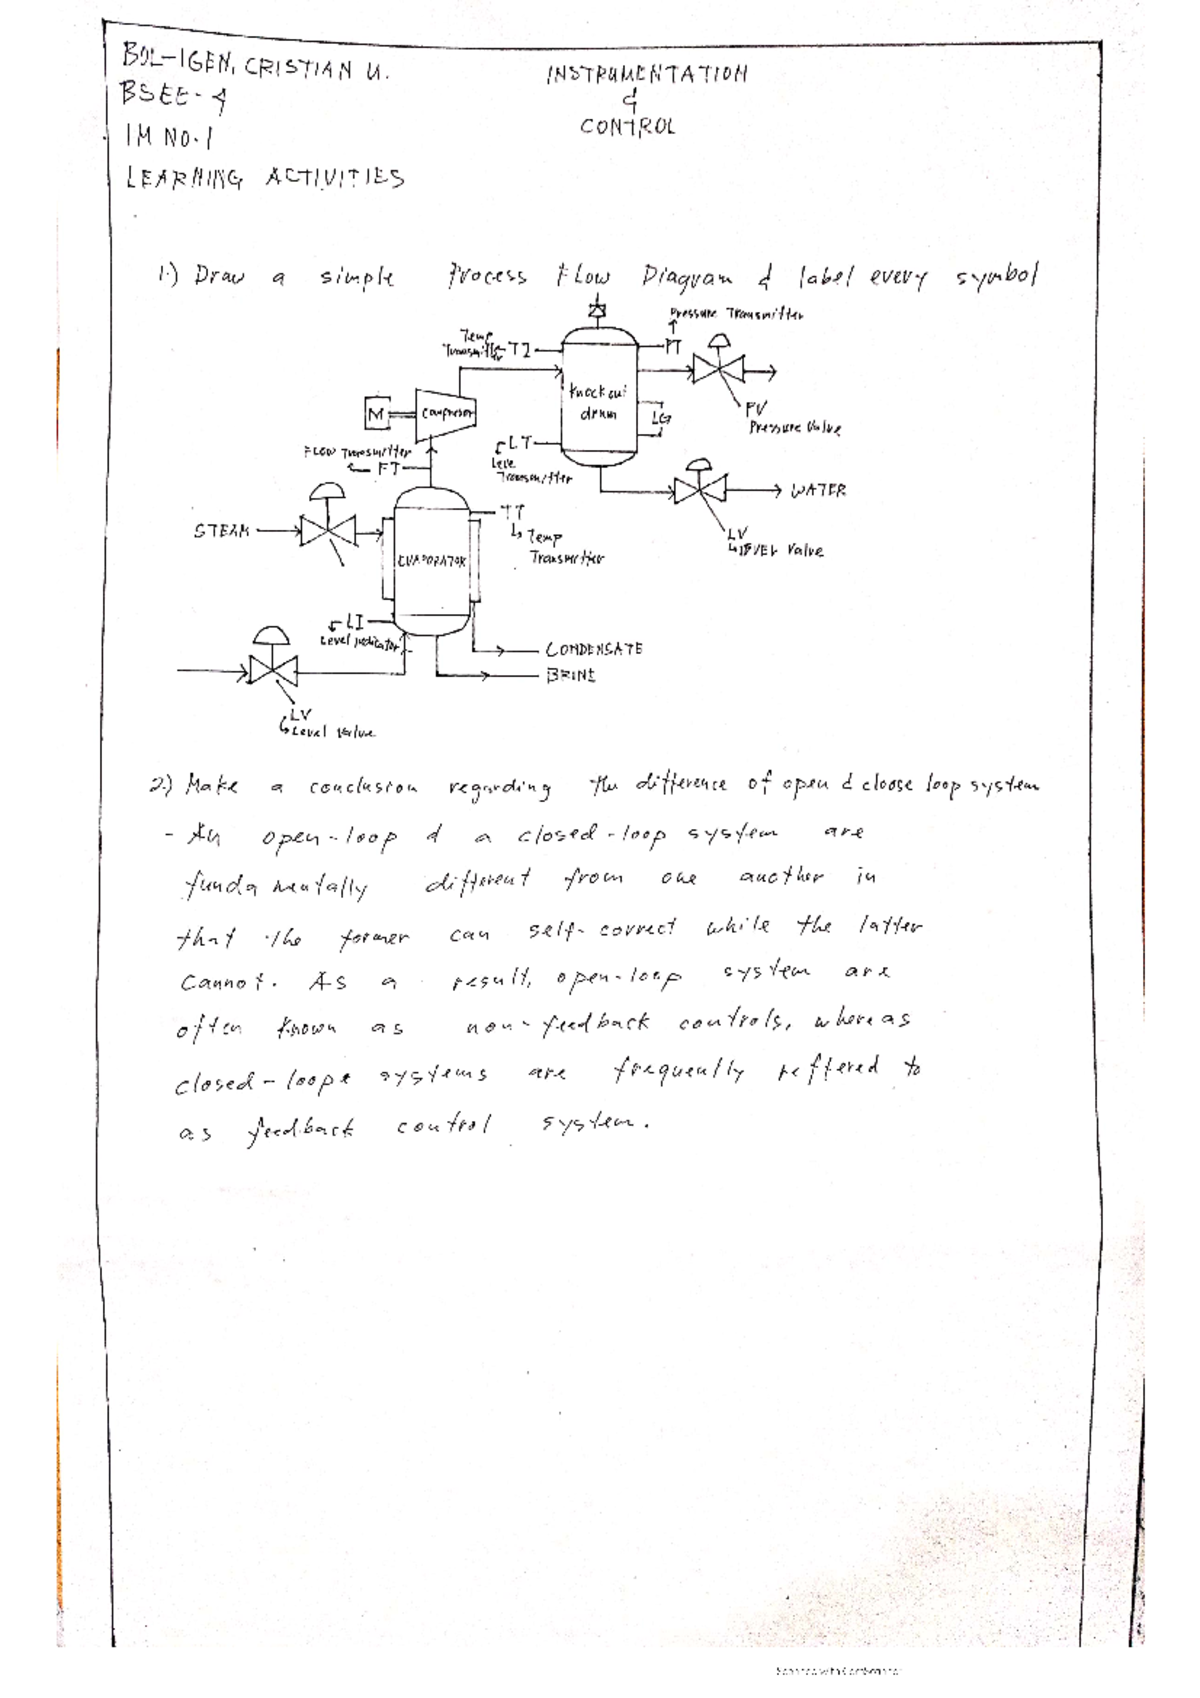 BOL-IGEN, CRISTIAN U.
INSTRUMENTATION
&
CONTROL
BSEE-4
IM NO.1
LEARNING ACTIVITIES
1.) Draw a simple Process Flow Diagram & label every symbol
Pressure Transmitter
Temp
Transmitter TI
PT
Knock out
drum
M
Compressor
LG
PV
Pressure Valve
FLOW Transmitter
FT
LT
Leve
Transmitter
WATER
STEAM
TT
Temp
Transmitter
LV
LEVEL Valve
EVAPORATOR
LI
Level indicator
CONDENSATE
BRINE
LV
Level Valve
2.) Make a conclusion regarding the difference of open & cloose loop system
- An open-loop & a closed-loop system are
fundamentally different from one another in
that the former can self-correct while the latter
cannot. As a result, open-loop system are
often known as non-feedback controls, whereas
closed-loope systems are frequently reffered to
as feedback control system.
Scanned with CamScanner